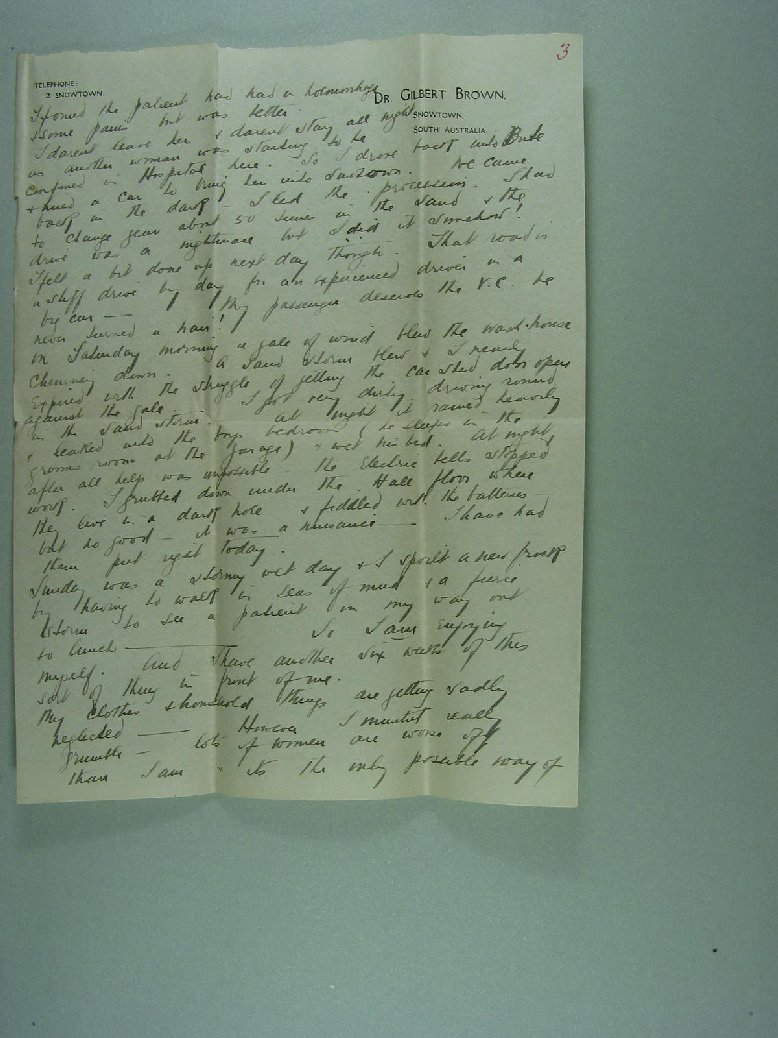 3
TELEPHONE:
2 SNOWTOWN
DR. GILBERT BROWN.
SNOWTOWN
SOUTH AUSTRALIA.
I found the patient had had a hoemorrhage
& some pain but was better.
I darent leave her & darent stay all night
as another woman was standing to be
confined in Hospital here. So I drove back into Bute
& hired a car to bring her into Snowtown. We came
back in the dark – I led the procession. I had
to change gear about 50 times in the sand & the
drive was a nightmare but I did it somehow!
I felt a bit done up next day though. That road is
a stiff drive by day for an experienced driver in a
big car — My passenger deserves the V.C. he
never turned a hair!
On Saturday morning a gale of wind blew the wash-house
chimney down. A sand storm blew & I nearly
expired with the struggle of getting the car shed doors open
against the gale. I got very dirty driving round
in the sand storm. At night it rained heavily
& leaked into the boys bedroom (he sleeps in the
grooms room at the garage) & wet his bed. At night,
after all help was impossible the Electric bells stopped
work. I grubbed down under the Hall floor where
they live in a dark hole & fiddled with the batteries
but no good – it was a nuisance — I have had
them put right today.
Sunday was a stormy wet day & I spoilt a new frock
by having to walk in seas of mud & a fierce
storm to see a patient on my way out
to lunch — So I am enjoying
myself. And I have another six weeks of this
sort of thing in front of me.
My clothes & household things are getting sadly
neglected — However I mustnt really
grumble – lots of women are worse off
than I am & its the only possible way of